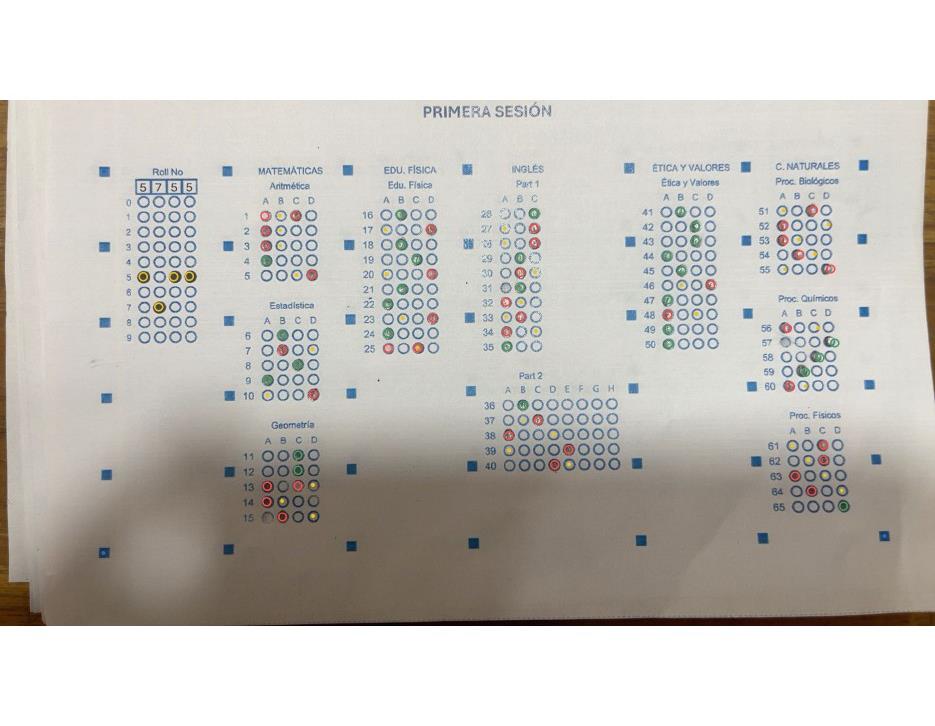 PRIMERA SESIÓN
Roll No
5 7 5 5
0
1
2
3
4
5
6
7
8
9
MATEMÁTICAS
Aritmética
A B C D
1
2
3
4
5
Estadística
A B C D
6
7
8
9
10
Geometría
A B C D
11
12
13
14
15
EDU. FÍSICA
Edu. Física
A B C D
16
17
18
19
20
21
22
23
24
25
INGLÉS
Part 1
A B C
26
27
28
29
30
31
32
33
34
35
Part 2
A B C D E F G H
36
37
38
39
40
ÉTICA Y VALORES
Ética y Valores
A B C D
41
42
43
44
45
46
47
48
49
50
C. NATURALES
Proc. Biológicos
A B C D
51
52
53
54
55
Proc. Químicos
A B C D
56
57
58
59
60
Proc. Físicos
A B C D
61
62
63
64
65